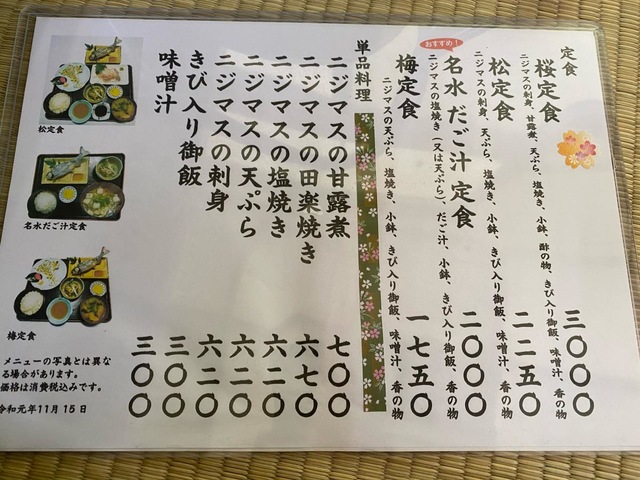 定食
桜定食 三〇〇〇
ニジマスの刺身、甘露煮、天ぷら、塩焼き、小鉢、酢の物、きび入り御飯、味噌汁、香の物
松定食 二二五〇
ニジマスの刺身、天ぷら、塩焼き、小鉢、きび入り御飯、味噌汁、香の物
おすすめ!
名水だご汁定食 二〇〇〇
ニジマスの塩焼き(又は天ぷら)、だご汁、小鉢、きび入り御飯、香の物
梅定食 一七五〇
ニジマスの天ぷら、塩焼き、小鉢、きび入り御飯、味噌汁、香の物
単品料理
ニジマスの甘露煮 七〇〇
ニジマスの田楽焼き 六七〇
ニジマスの塩焼き 六二〇
ニジマスの天ぷら 六二〇
ニジマスの刺身 六二〇
きび入り御飯 三〇〇
味噌汁 三〇〇
松定食
名水だご汁定食
梅定食
メニューの写真とは異な
る場合があります。
価格は消費税込みです。
令和元年11月15日